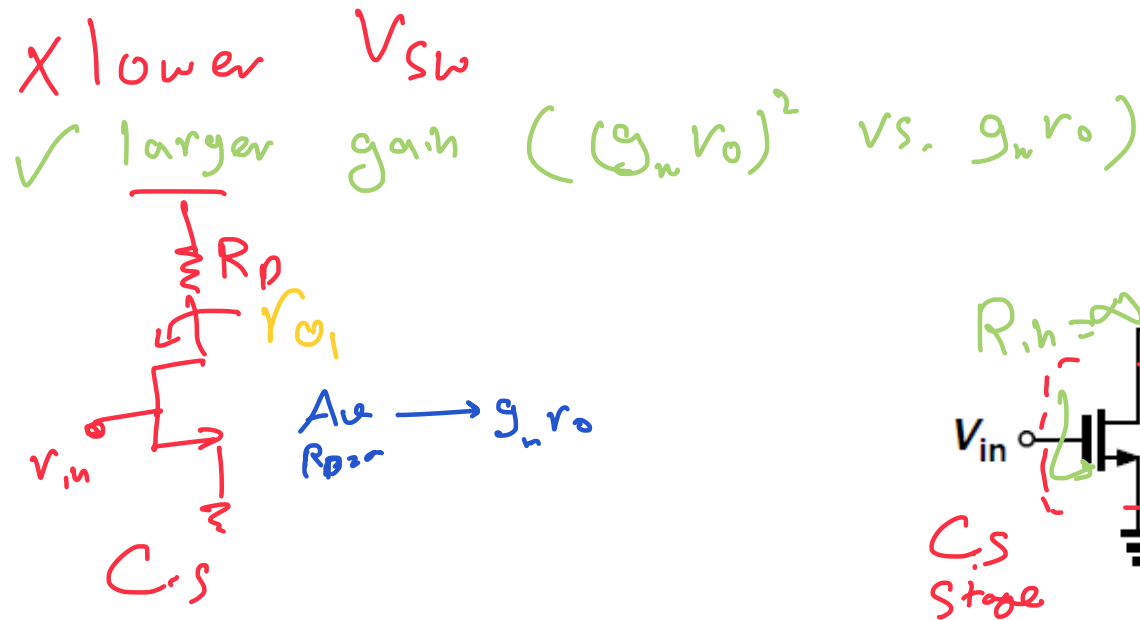 X lower Vsw
✓ larger gain ((gm ro)² vs. gm ro)
RD
ro1
Rin = ∞
Av → gm ro
RD=∞
Vin
vin
C.S
C.S
stage